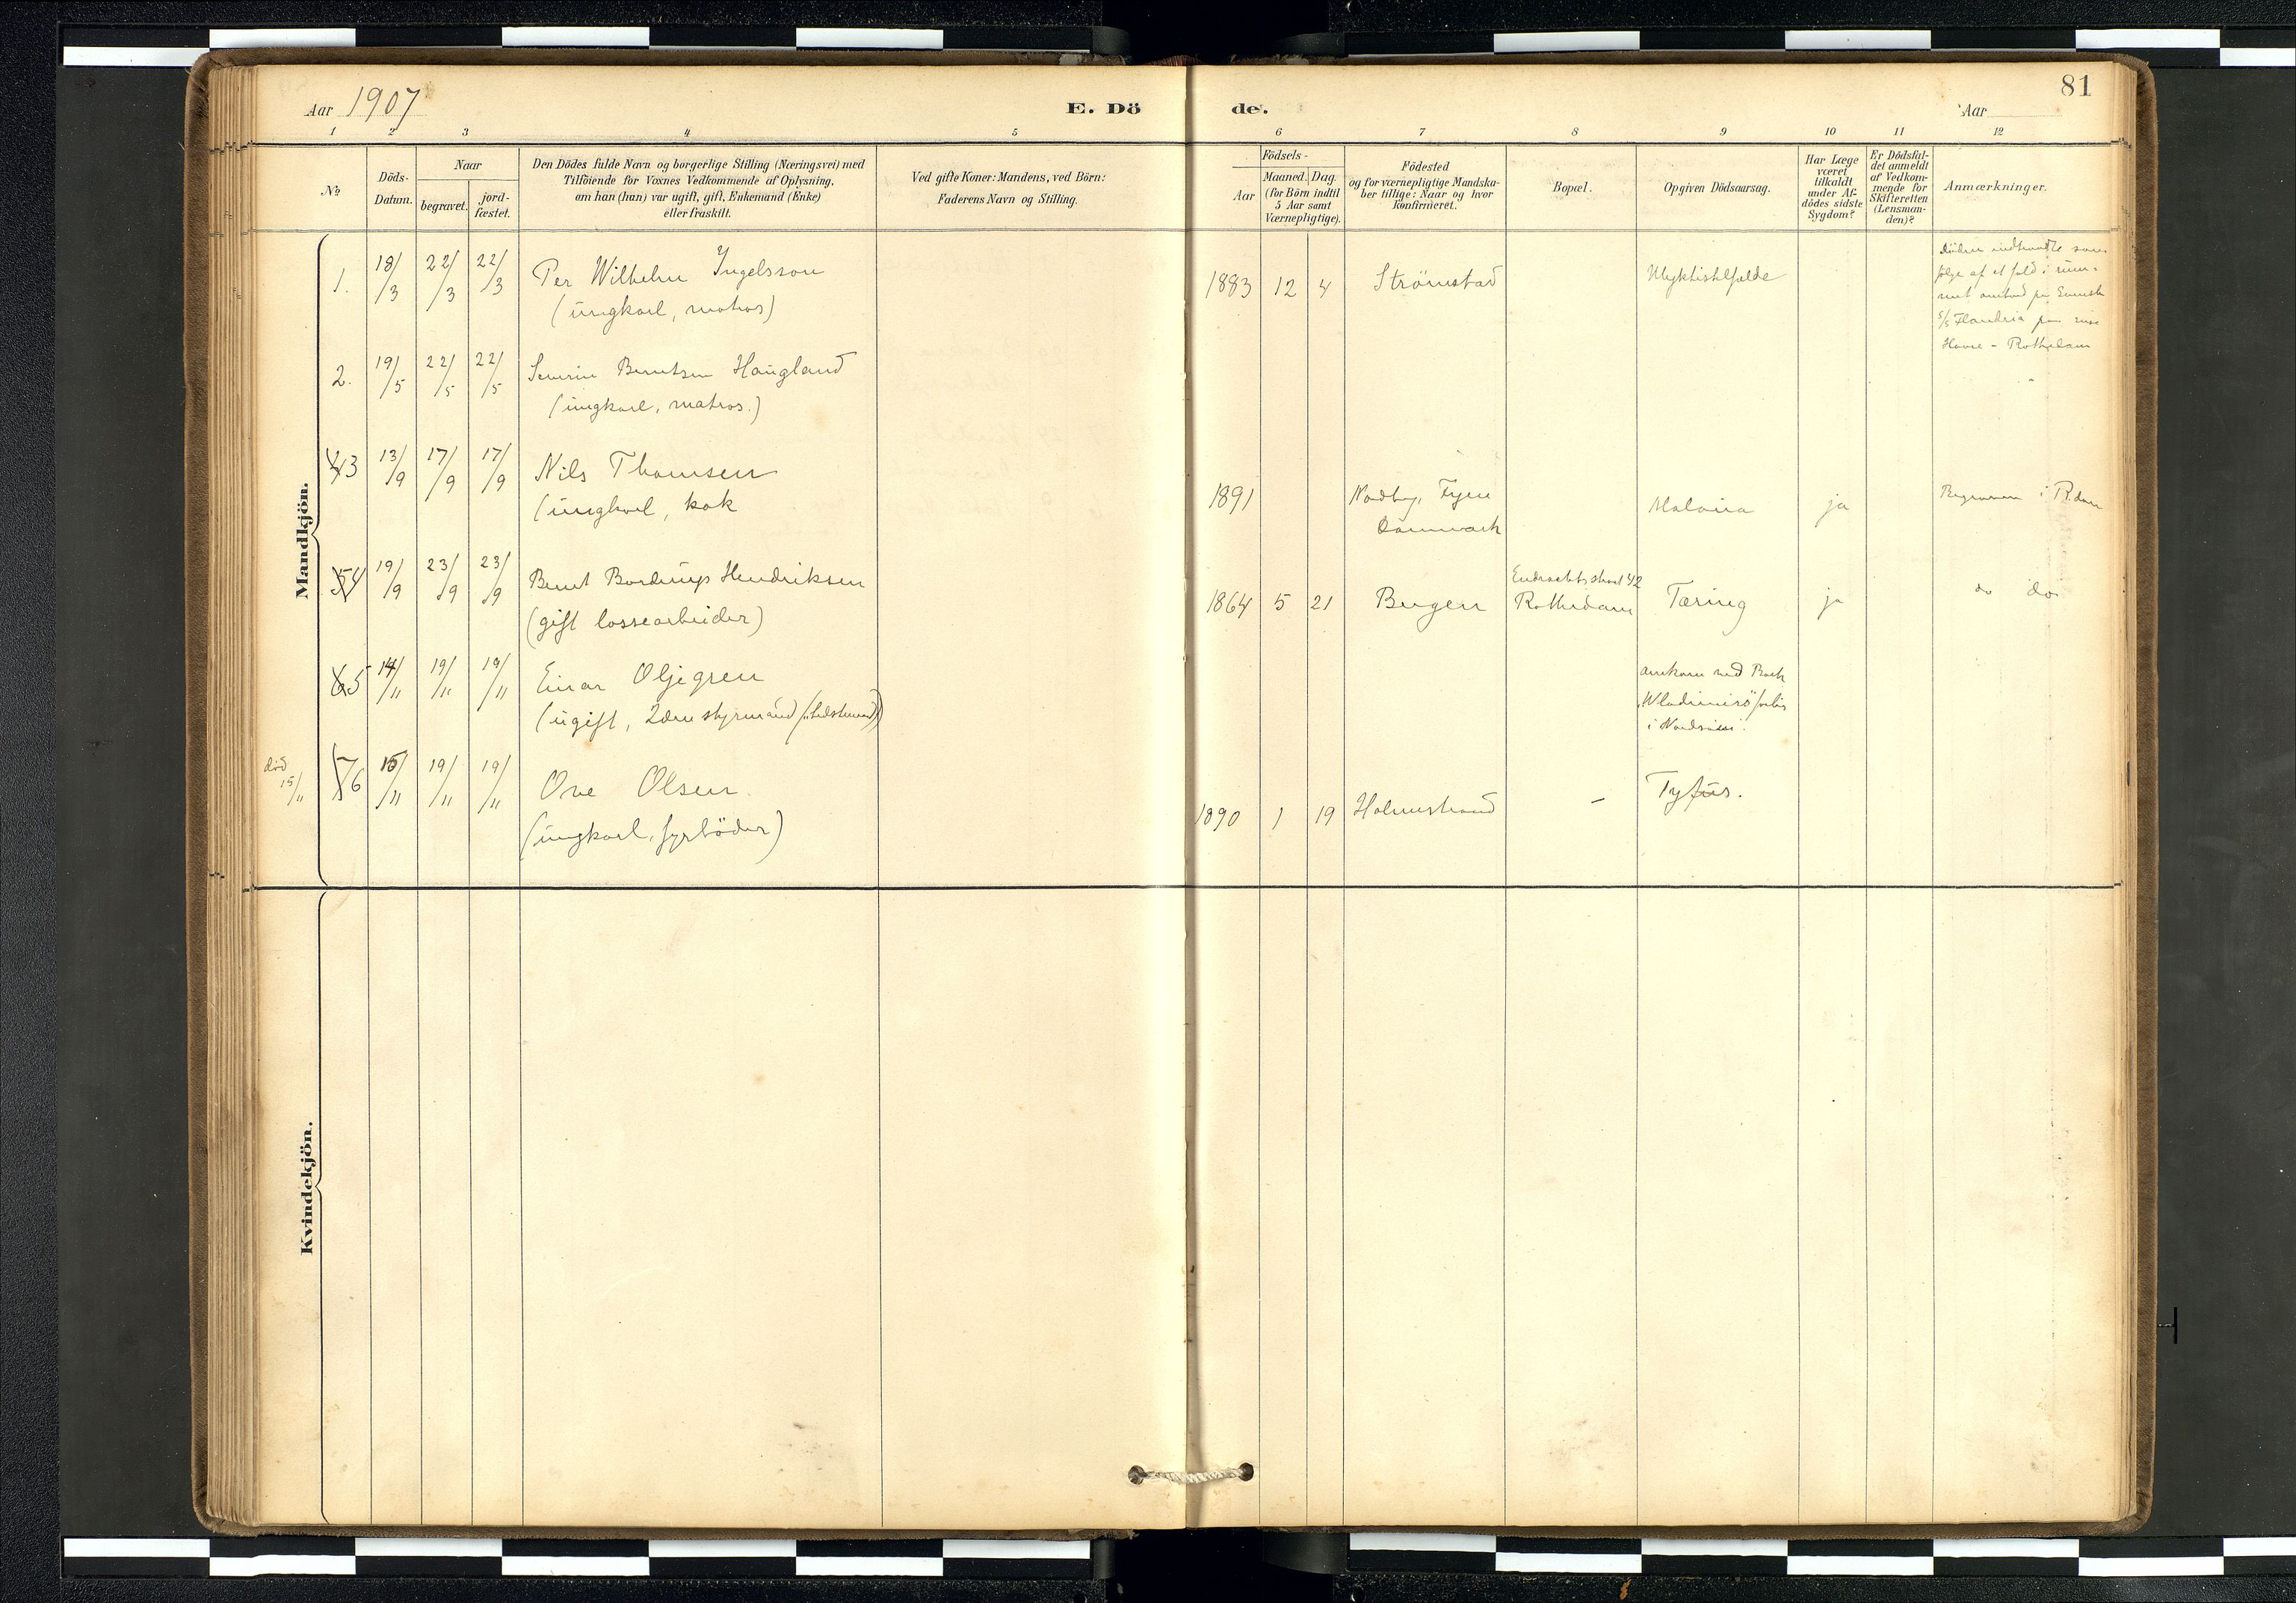 Aar 1907
E. Dö
de.
Aar
81
1 2 3 4 5 6 7 8 9 10 11 12
No
Döds-
Datum.
Naar
begravet.
jord-
fæstet.
Den Dödes fulde Navn og borgerlige Stilling (Næringsvei) med
Tilföiende for Voxnes Vedkommende af Oplysning,
om han (hun) var ugift, gift, Enkemand (Enke)
eller fraskilt.
Ved gifte Koner: Mandens, ved Börn:
Faderens Navn og Stilling.
Födsels-
Aar
Maaned. Dag.
(for Börn indtil
5 Aar samt
Værnepligtige).
Födested
og for værnepligtige Mandska-
ber tillige: Naar og hvor
konfirmeret.
Bopæl.
Opgiven Dödsaarsag.
Har Læge
været
tilkaldt
under Af-
dödes sidste
Sygdom?
Er Dödsfal-
det anmeldt
af Vedkom-
mende for
Skifteretten
(Lensman-
den)?
Anmærkninger.
Mandkjön.
1. 18/3 22/3 22/3 Per Wilhelm Ingelsson
(ungkarl, matros)
1883 12 4 Strömstad
følge af et fald i
s/s Flandria
Havre - Rotterdam
2. 19/5 22/5 22/5 Severin Berntsen Haugland
(ungkarl, matros.)
3 13/9 17/9 17/9 Nils Thomsen
(ungkarl, kok
1891 Nordby, Fyen
Danmark
Malaria ja i Rdam
4 19/9 23/9 23/9 Bernt Bordrup Hendriksen
(gift lossearbeider)
1864 5 21 Bergen
Rotterdam Tæring ja do do
5 14/11 19/11 19/11 Einar Oljegren
(ugift, 2den styrmand
ved Bark
i Nordsøen.
død
15/11
6 15/11 19/11 19/11 Ove Olsen.
(ungkarl, fyrböder)
1890 1 19 Holmestrand - Tyfus.
Kvindekjön.